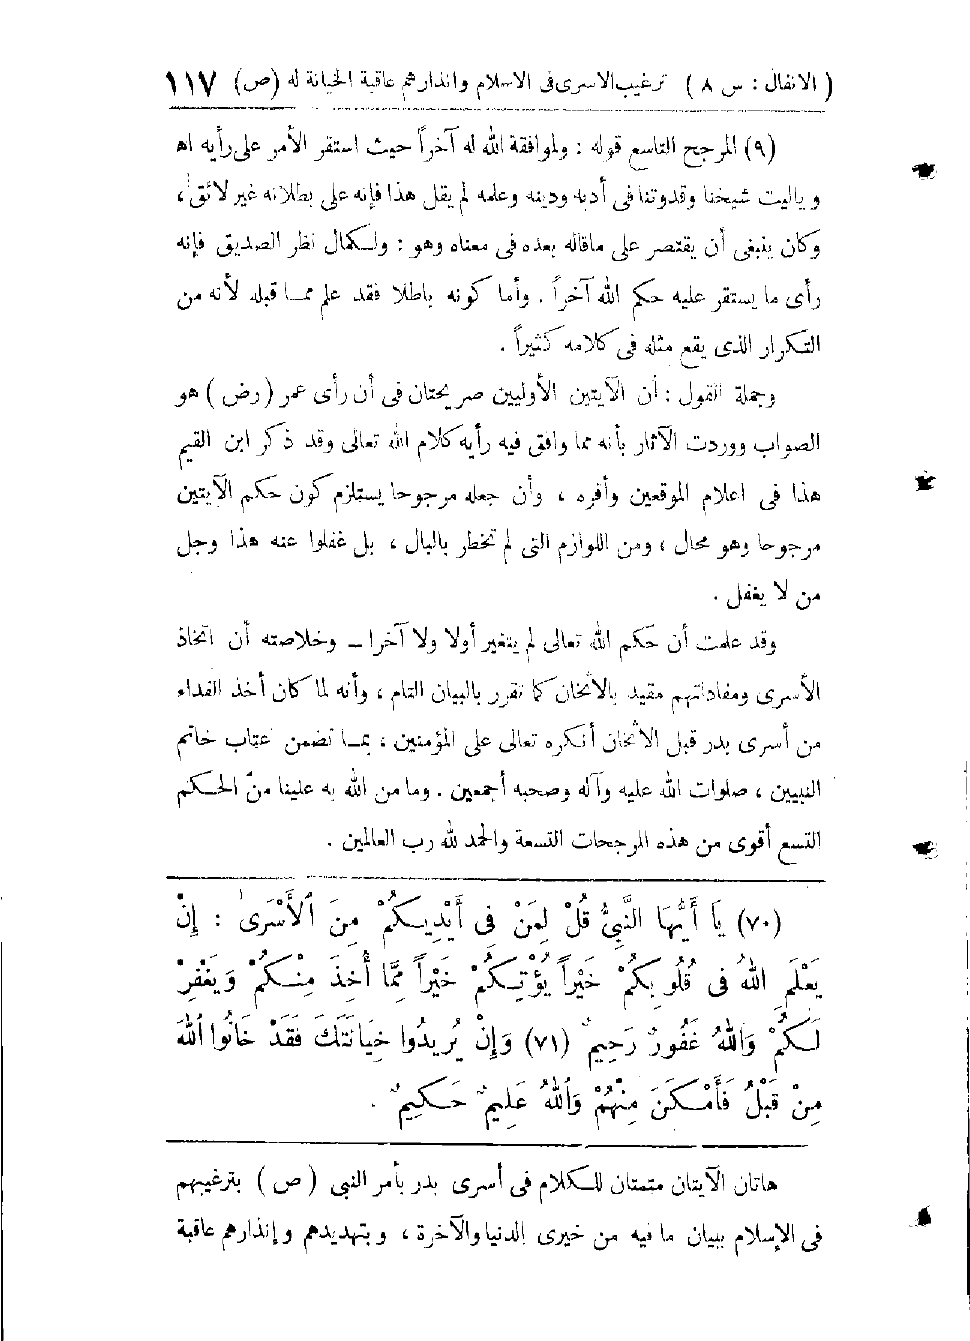 ( الانفال : س ٨ ) ترغيب الاسرى فى الاسلام وانذارهم عاقبة الخيانة له (ص) ١١٧
(٩) المرجح التاسع قوله : ولموافقة الله له آخراً حيث استقر الأمر على رأيه اه
وياليت شيخنا وقدوتنا فى أدبه ودينه وعلمه لم يقل هذا فإنه على بطلانه غير لائق ،
وكان ينبغى أن يقتصر على ماقاله بعده فى معناه وهو : ولكمال نظر الصديق فإنه
رأى ما يستقر عليه حكم الله آخراً . وأما كونه باطلا فقد علم مما قبله لأنه من
التكرار الذى يقع مثله فى كلامه كثيراً .
وجملة القول : أن الآيتين الأوليين صريحتان فى أن رأى عمر ( رض ) هو
الصواب ووردت الآثار بأنه مما وافق فيه رأيه كلام الله تعالى وقد ذكر ابن القيم
هذا فى اعلام الموقعين وأقره ، وأن جعله مرجوحا يستلزم كون حكم الآيتين
مرجوحا وهو محال ، ومن اللوازم التى لم تخطر بالبال ، بل غفلوا عنه هذا وجل
من لا يغفل .
وقد علمت أن حكم الله تعالى لم يتغير أولا ولا آخرا ــ وخلاصته أن اتخاذ
الأسرى ومفاداتهم مقيد بالاثخان كما تقرر بالبيان التام ، وأنه لما كان أخذ الفداء
من أسرى بدر قبل الاثخان أنكره تعالى على المؤمنين ، بما تضمن عتاب خاتم
النبيين ، صلوات الله عليه وآله وصحبه أجمعين . وما من الله به علينا منّ الحكم
التسع أقوى من هذه المرجحات التسعة والحمد لله رب العالمين .
(٧٠) يَا أَيُّهَا النَّبِيُّ قُلْ لِمَنْ فِى أَيْدِيكُمْ مِنَ الْأَسْرَى : إِنْ
يَعْلَمِ اللهُ فى قُلُوبِكُمْ خَيْراً يُؤْتِكُمْ خَيْراً مِمَّا أُخِذَ مِنْكُمْ وَيَغْفِرْ
لَكُمْ وَاللهُ غَفُورٌ رَحِيمٌ (٧١) وَإِنْ يُرِيدُوا خِيَانَتَكَ فَقَدْ خَانُوا اللهَ
مِنْ قَبْلُ فَأَمْكَنَ مِنْهُمْ وَاللهُ عَلِيمٌ حَكِيمٌ .
هاتان الآيتان متممتان للكلام فى أسرى بدر بأمر النبى ( ص ) بترغيبهم
فى الإسلام ببيان ما فيه من خيرى الدنيا والآخرة ، وبتهديدهم وإنذارهم عاقبة